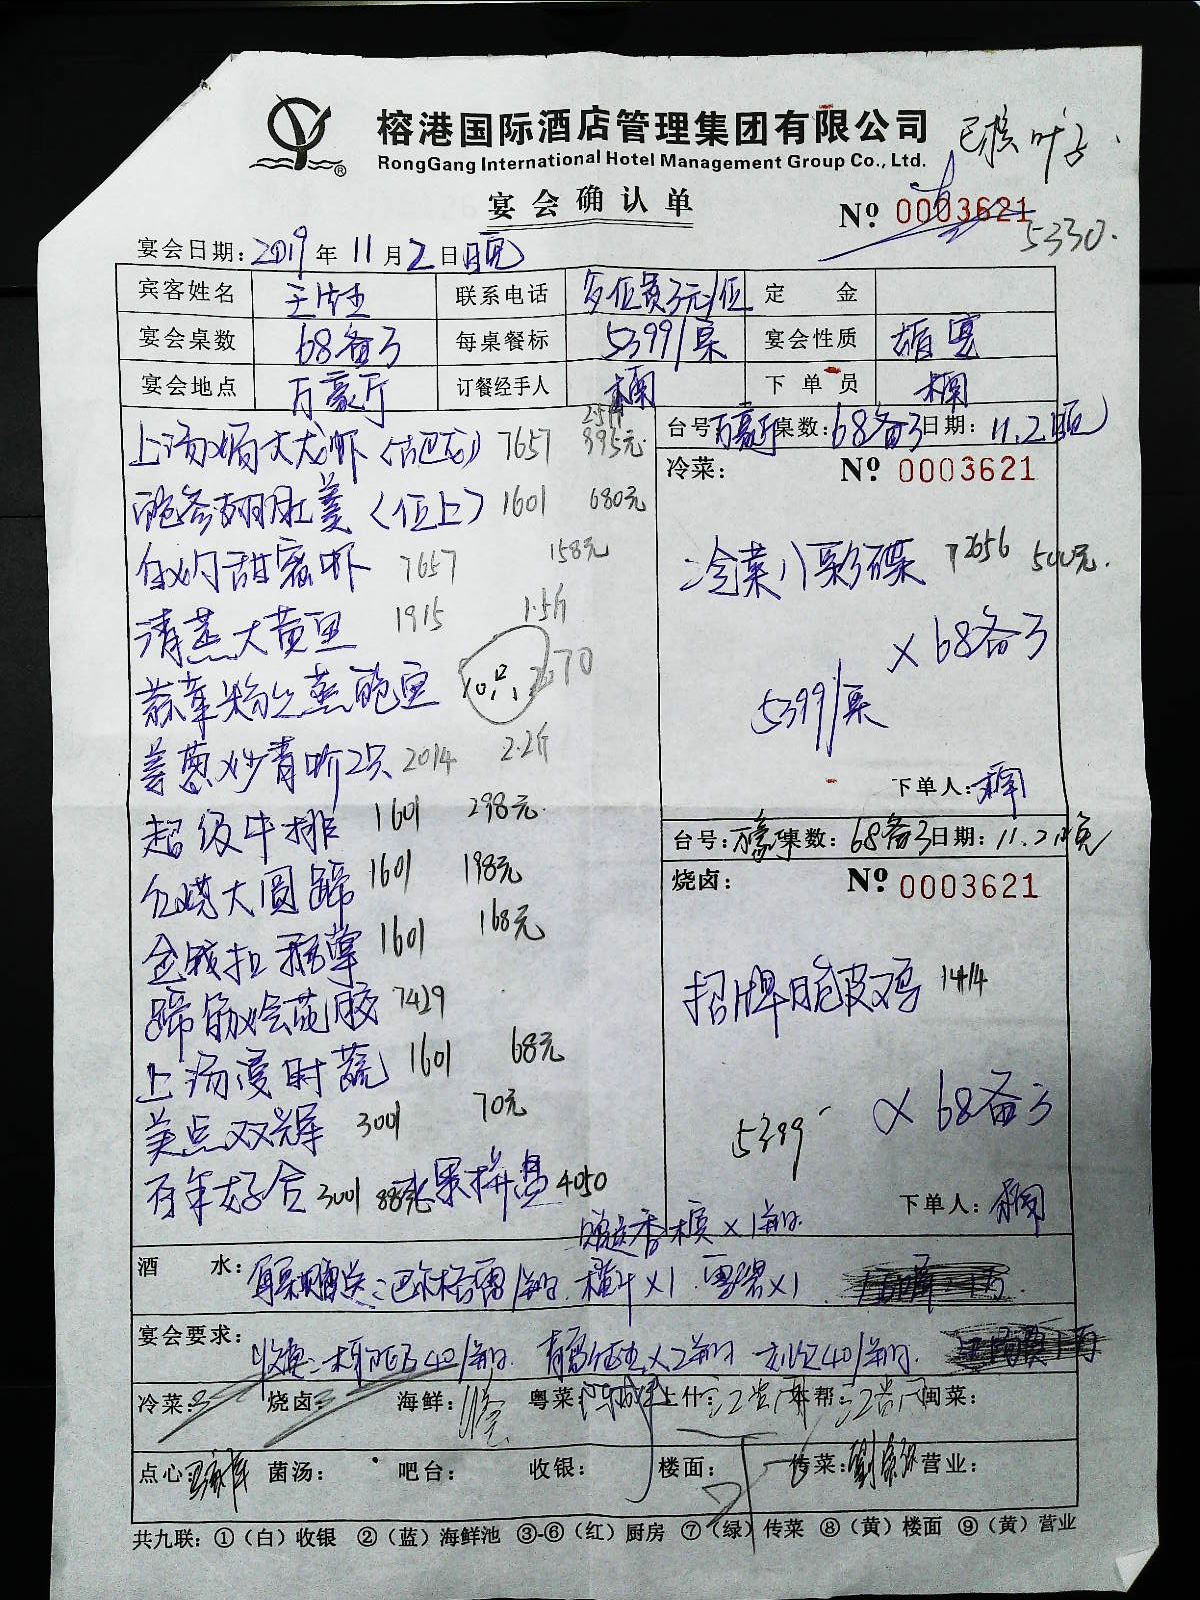 榕港国际酒店管理集团有限公司
RongGang International Hotel Management Group Co., Ltd.
已核 叶
宴会确认单
№ 0003621
5330.
宴会日期: 2019年11月2日晚
宾客姓名 联系电话 多位员3元/位 定金
宴会桌数 68备3 每桌餐标 5399/桌 宴会性质 婚宴
宴会地点 万豪厅 订餐经手人 下单员
台号: 万豪厅 桌数: 68备3 日期: 11.2晚
上汤焗大龙虾(古巴龙) 7657 895元
(位上) 1601 680元
白灼甜蜜虾 7657 158元
清蒸大黄鱼 1915 1.5斤
蒜蓉粉丝蒸鲍鱼 10只
姜葱炒青蟹2只 2014 2.2斤
超级牛排 1601 298元
红烧大圆蹄 1601 198元
金钱扣 1601 168元
蹄筋烩花胶 7429
上汤浸时蔬 1601 68元
美点双辉 3001 70元
百年好合 3001 88元 水果拼盘 4050
冷菜: № 0003621
冷菜八彩碟 7656 500元.
× 68备3
5399/桌
下单人:
台号: 万豪厅 桌数: 68备3 日期: 11.2晚
烧卤: № 0003621
招牌脆皮鸡 1414
× 68备3
5399
下单人:
赠送香槟×1
酒水: 每桌赠送: 巴尔格雷1 橙汁×1 雪碧×1
宴会要求: 40/ ×2 40/
冷菜: 烧卤: 海鲜: 粤菜: 上什: 本帮: 闽菜:
点心: 菌汤: 吧台: 收银: 楼面: 传菜: 营业:
共九联: ①(白)收银 ②(蓝)海鲜池 ③-⑥(红)厨房 ⑦(绿)传菜 ⑧(黄)楼面 ⑨(黄)营业